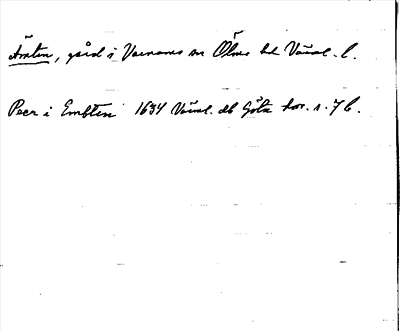 Ämten, gård i Varnums sn Ölme hd Värml. l.
Peer i Embten 1634 Värml. db Göta hov. s. 76.